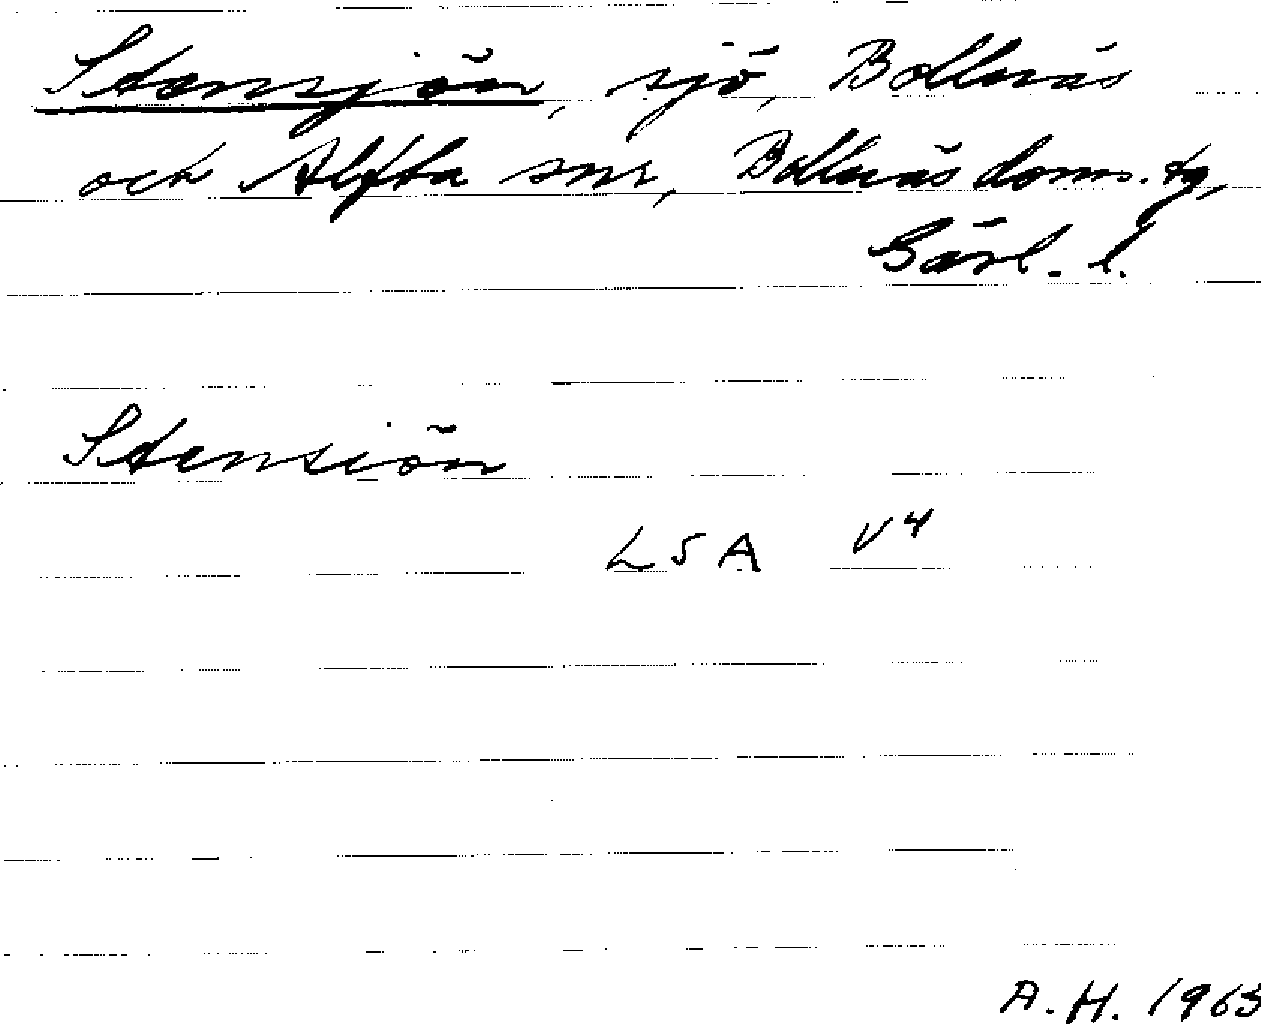 Stensjön, sjö, Bollnäs
och Alfta snr, Bollnäs doms. tg,
Gävl. l.
Stensiön
LSA V4
A.H. 1963